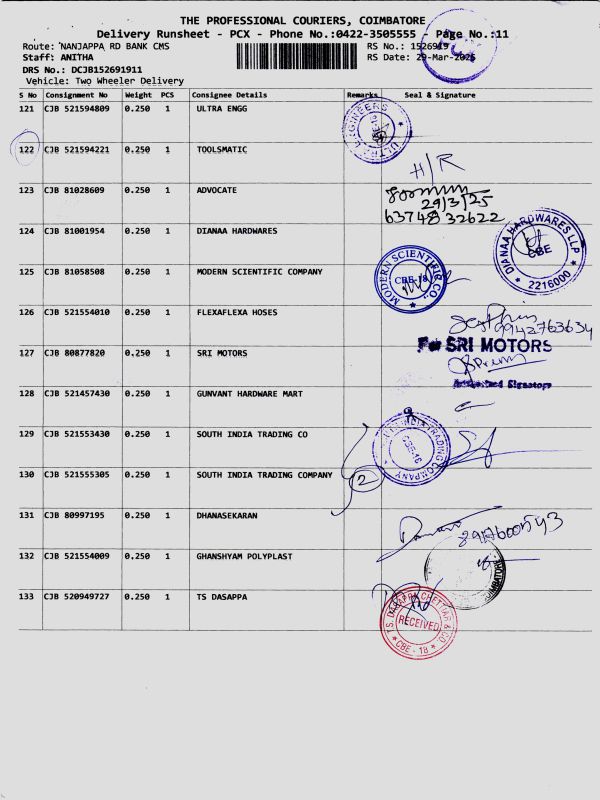 THE PROFESSIONAL COURIERS, COIMBATORE
Delivery Runsheet - PCX - Phone No.:0422-3505555 - Page No.:11
Route: NANJAPPA RD BANK CMS RS No.: 1526919
Staff: ANITHA RS Date: 29-Mar-2025
DRS No.: DCJB152691911
Vehicle: Two Wheeler Delivery
S No Consignment No Weight PCS Consignee Details Remarks Seal & Signature
121 CJB 521594809 0.250 1 ULTRA ENGG
ULTRA ENGINEERS
122 CJB 521594221 0.250 1 TOOLSMATIC
H/R
123 CJB 81028609 0.250 1 ADVOCATE
29/3/25
63748 32622
124 CJB 81001954 0.250 1 DIANAA HARDWARES
DIANAA HARDWARES LLP
CBE
2216000
125 CJB 81058508 0.250 1 MODERN SCIENTIFIC COMPANY
MODERN SCIENTIFIC CO.
CBE-18
126 CJB 521554010 0.250 1 FLEXAFLEXA HOSES
9942763634
127 CJB 80877820 0.250 1 SRI MOTORS
For SRI MOTORS
Authorised Signatory
128 CJB 521457430 0.250 1 GUNVANT HARDWARE MART
129 CJB 521553430 0.250 1 SOUTH INDIA TRADING CO
SOUTH INDIA TRADING COMPANY
130 CJB 521555305 0.250 1 SOUTH INDIA TRADING COMPANY
2
131 CJB 80997195 0.250 1 DHANASEKARAN
132 CJB 521554009 0.250 1 GHANSHYAM POLYPLAST
133 CJB 520949727 0.250 1 TS DASAPPA
T.S. DASAPPA CHETTIAR & CO.
RECEIVED
CBE - 18